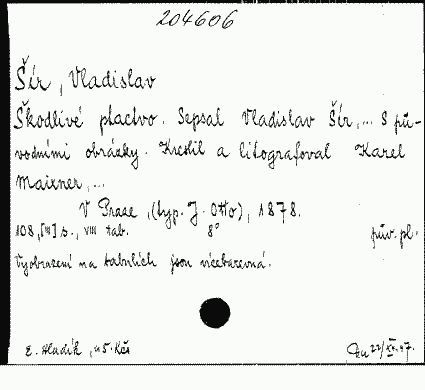 204606
Šír, Vladislav
Škodlivé ptactvo. Sepsal Vladislav Šír,... S pů-
vodními obrázky. Kreslil a litografoval Karel
Maixner,...
V Praze, (typ. J. Otto), 1878.
108, [III] s., VIII tab. 8° pův. pl.
Vyobrazení na tabulích jsou vícebarevná.
E. Hladík, 45 Kčs 22/XI. 47.